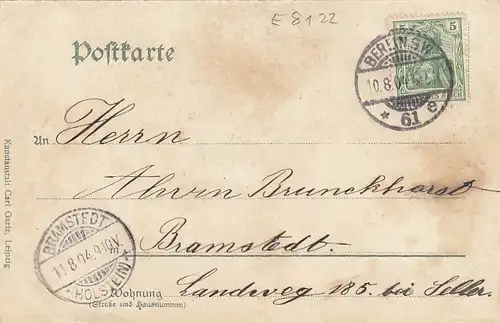 E 8122
Postkarte
5
BERLIN S.W.
10.8.04
* 61 e
An Herrn
Alwin Brunckhorst
in Bramstedt.
Wohnung Landweg 185. bei Seller.
(Straße und Hausnummer)
BRAMSTEDT
11.8.04.9-10V.
(HOLSTEIN)
Kunstanstalt Carl Garte, Leipzig